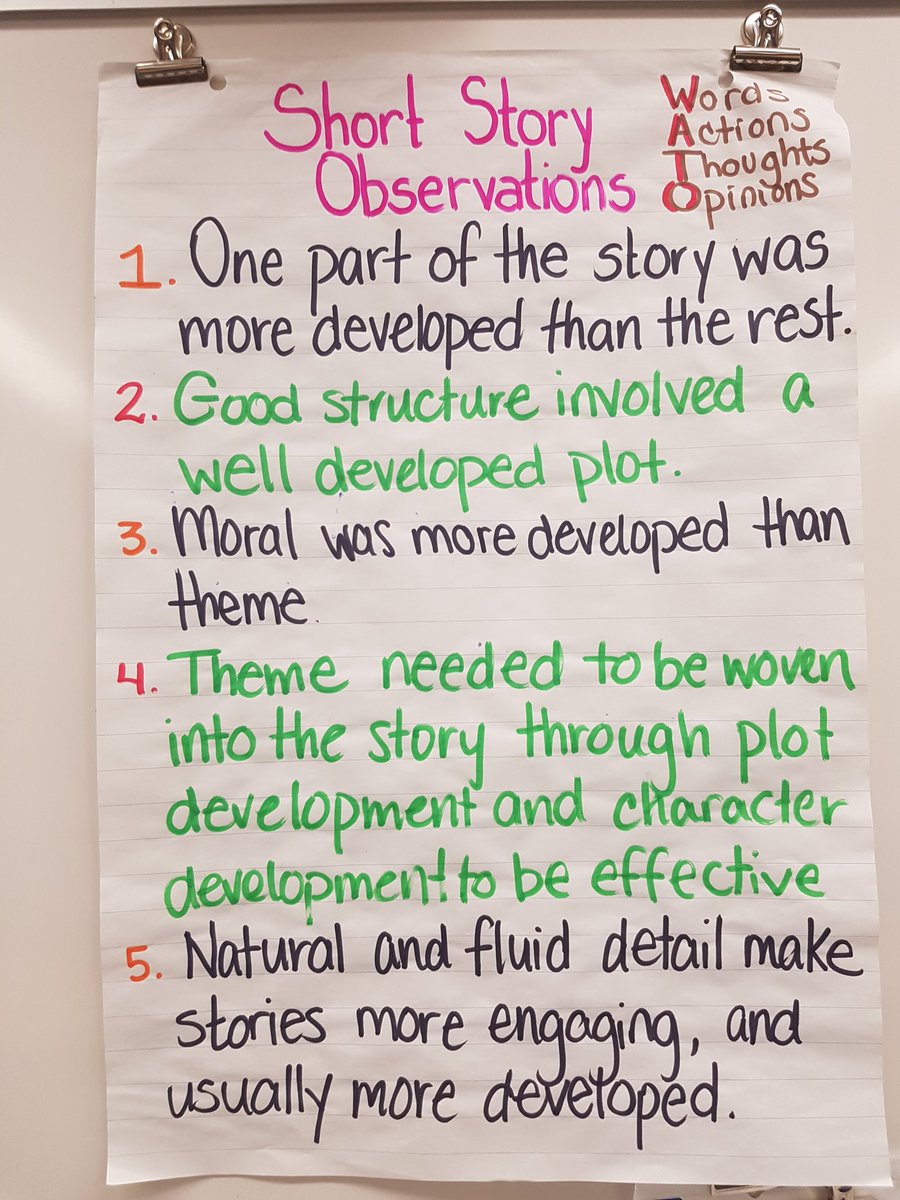 Short Story
Observations
Words
Actions
Thoughts
Opinions
1. One part of the story was
more developed than the rest.
2. Good structure involved a
well developed plot.
3. Moral was more developed than
theme.
4. Theme needed to be woven
into the story through plot
development and character
development to be effective
5. Natural and fluid detail make
stories more engaging, and
usually more developed.